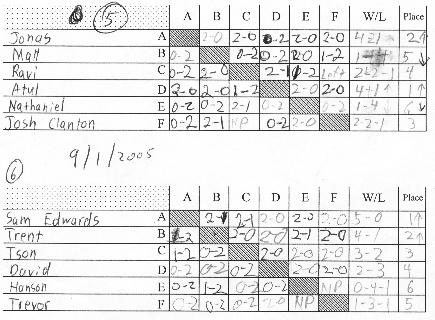 5
A B C D E F W/L Place
Jonas A 2-0 2-0 0-2 2-0 2-0 4-1 2↑
Matt B 0-2 0-2 0-2 2-0 1-2 5↓
Ravi C 0-2 2-0 2-1 0-2 2-2-1 4
Atul D 2-0 2-0 1-2 2-0 2-0 4-1 1↑
Nathaniel E 0-2 0-2 2-1 0-2 0-2 1-4 6↓
Josh Clanton F 0-2 2-1 NP 0-2 2-0 2-2-1 3
9/1/2005
6
A B C D E F W/L Place
Sam Edwards A 2-1 2-0 2-0 2-0 5-0 1↑
Trent B 2-0 2-0 2-1 2-0 4-1 2↑
Tson C 1-2 0-2 2-0 2-0 2-0 3-2 3
David D 0-2 0-2 0-2 2-0 2-0 2-3 4
Hanson E 0-2 1-2 0-2 0-2 NP 0-4-1 6
Trevor F 0-2 0-2 0-2 2-0 NP 1-3-1 5